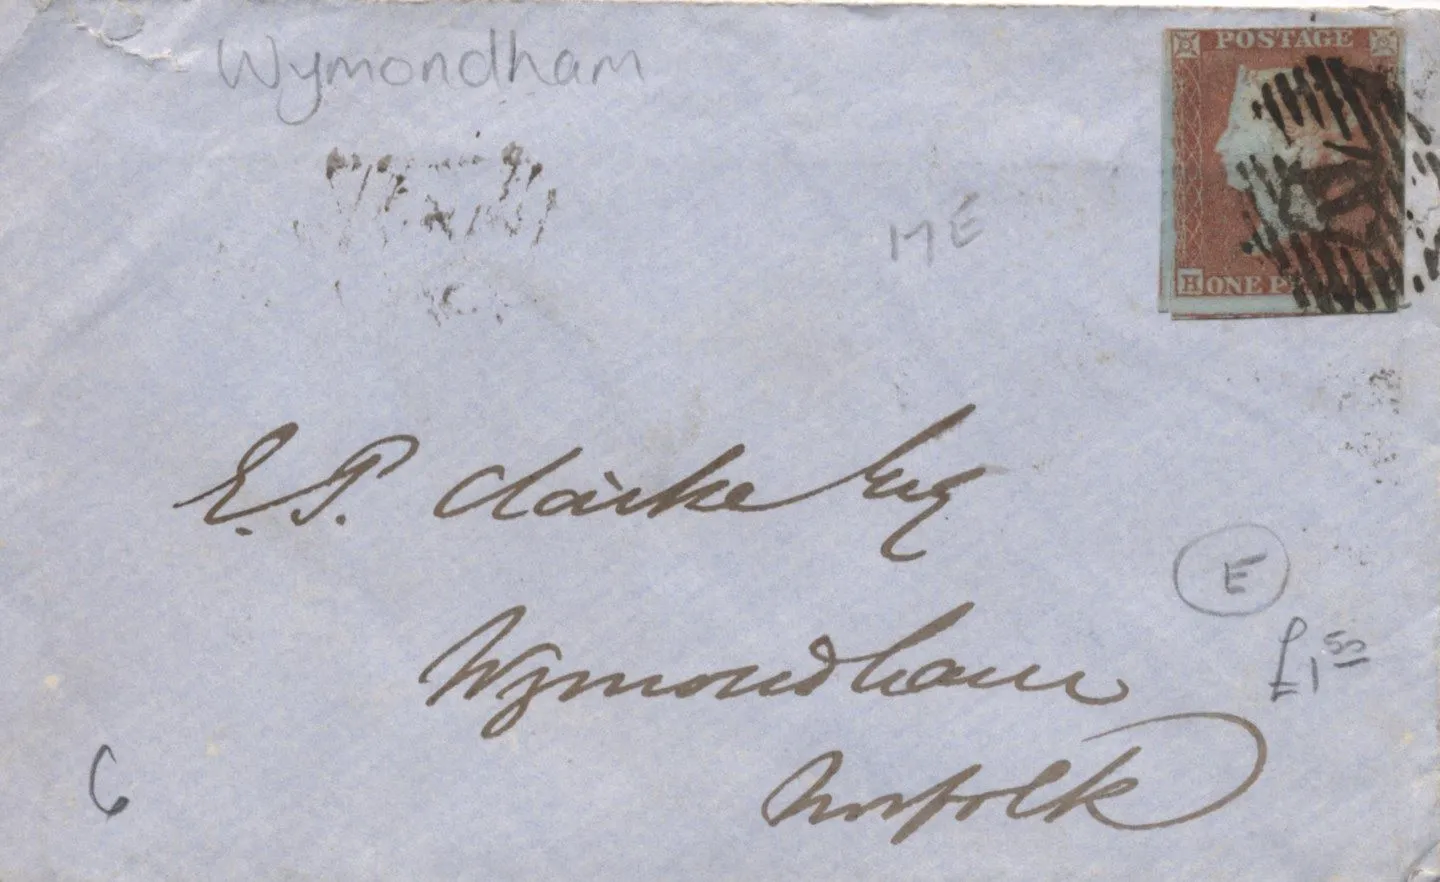 Wymondham
POSTAGE
ME
H ONE P
E. P. Clarke Esq
E
Wymondham
£1 50
Norfolk
6